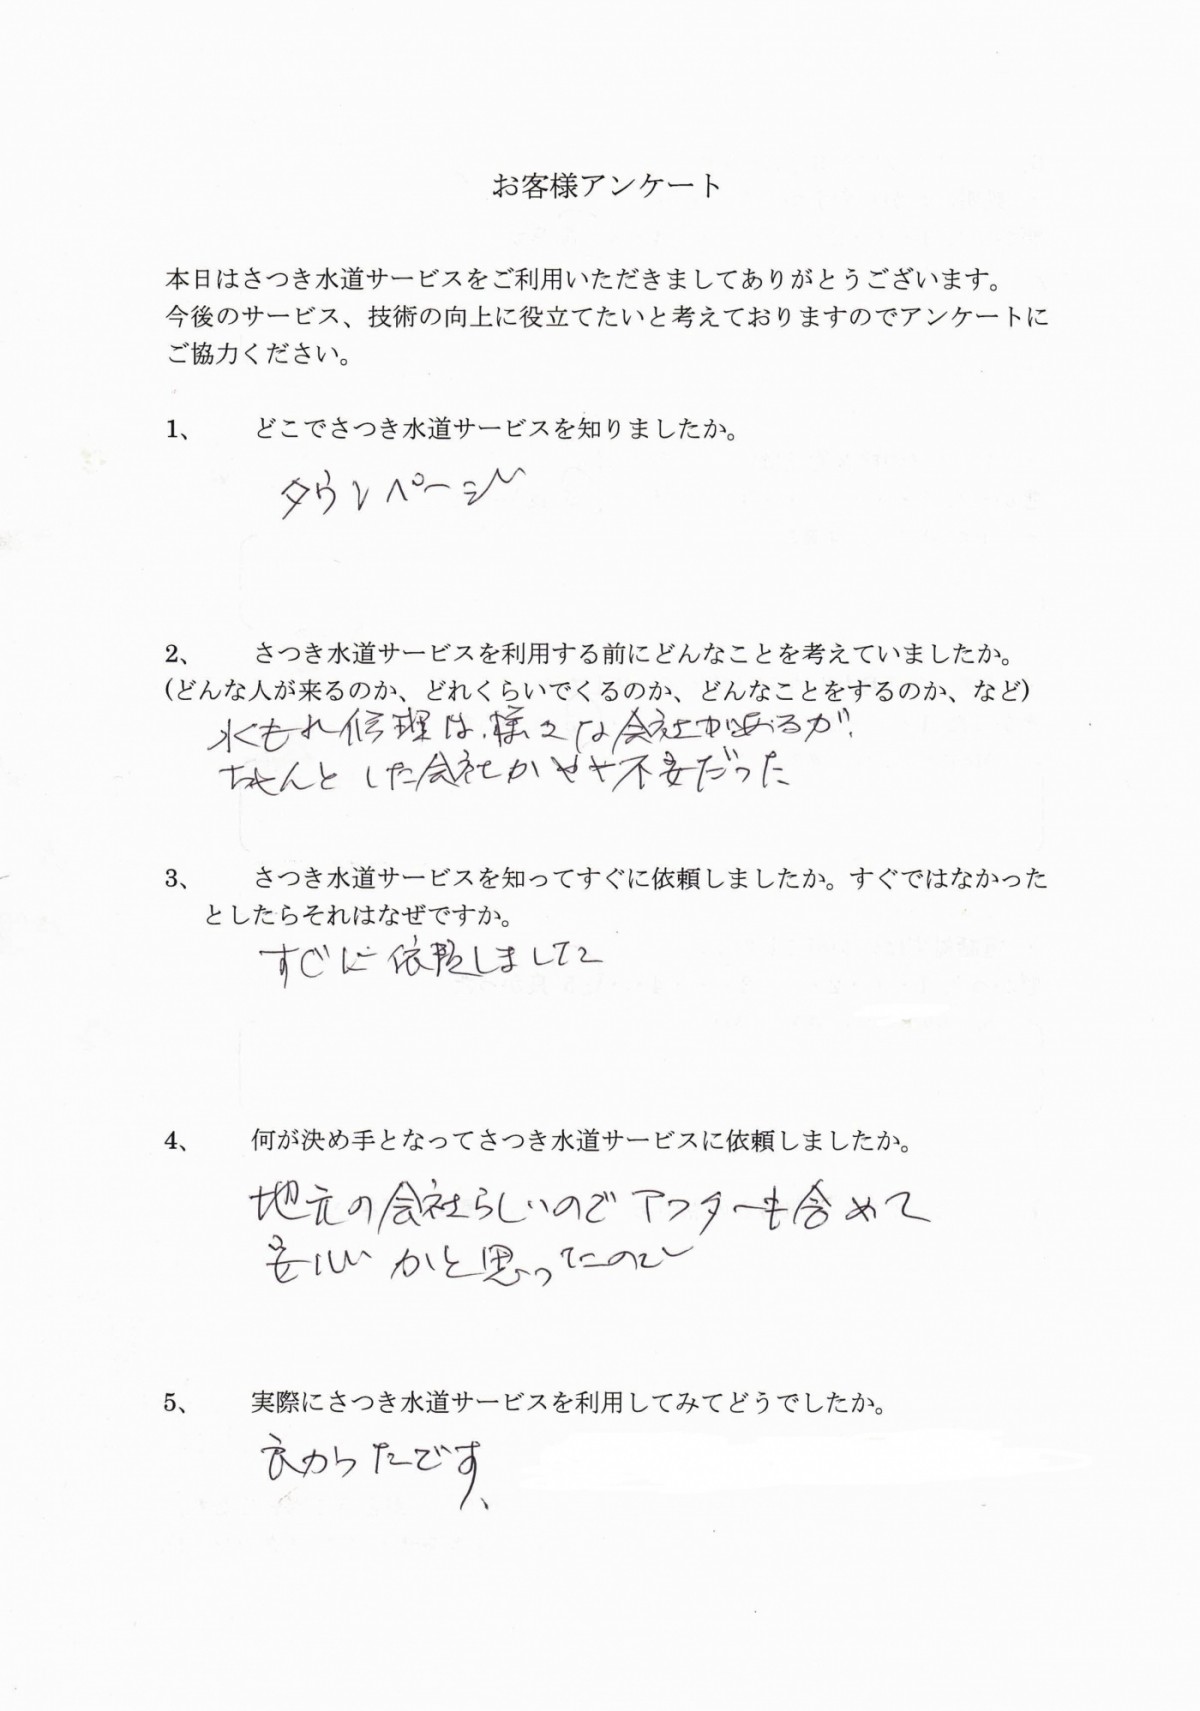 お客様アンケート
本日はさつき水道サービスをご利用いただきましてありがとうございます。
今後のサービス、技術の向上に役立てたいと考えておりますのでアンケートに
ご協力ください。
1、 どこでさつき水道サービスを知りましたか。
タウンページ
2、 さつき水道サービスを利用する前にどんなことを考えていましたか。
(どんな人が来るのか、どれくらいでくるのか、どんなことをするのか、など)
水もれ修理は、様々な会社があるが、
ちゃんとした会社かやや不安だった
3、 さつき水道サービスを知ってすぐに依頼しましたか。すぐではなかった
としたらそれはなぜですか。
すぐに依頼しました
4、 何が決め手となってさつき水道サービスに依頼しましたか。
地元の会社らしいのでアフターも含めて
安心かと思ったので
5、 実際にさつき水道サービスを利用してみてどうでしたか。
良かったです、